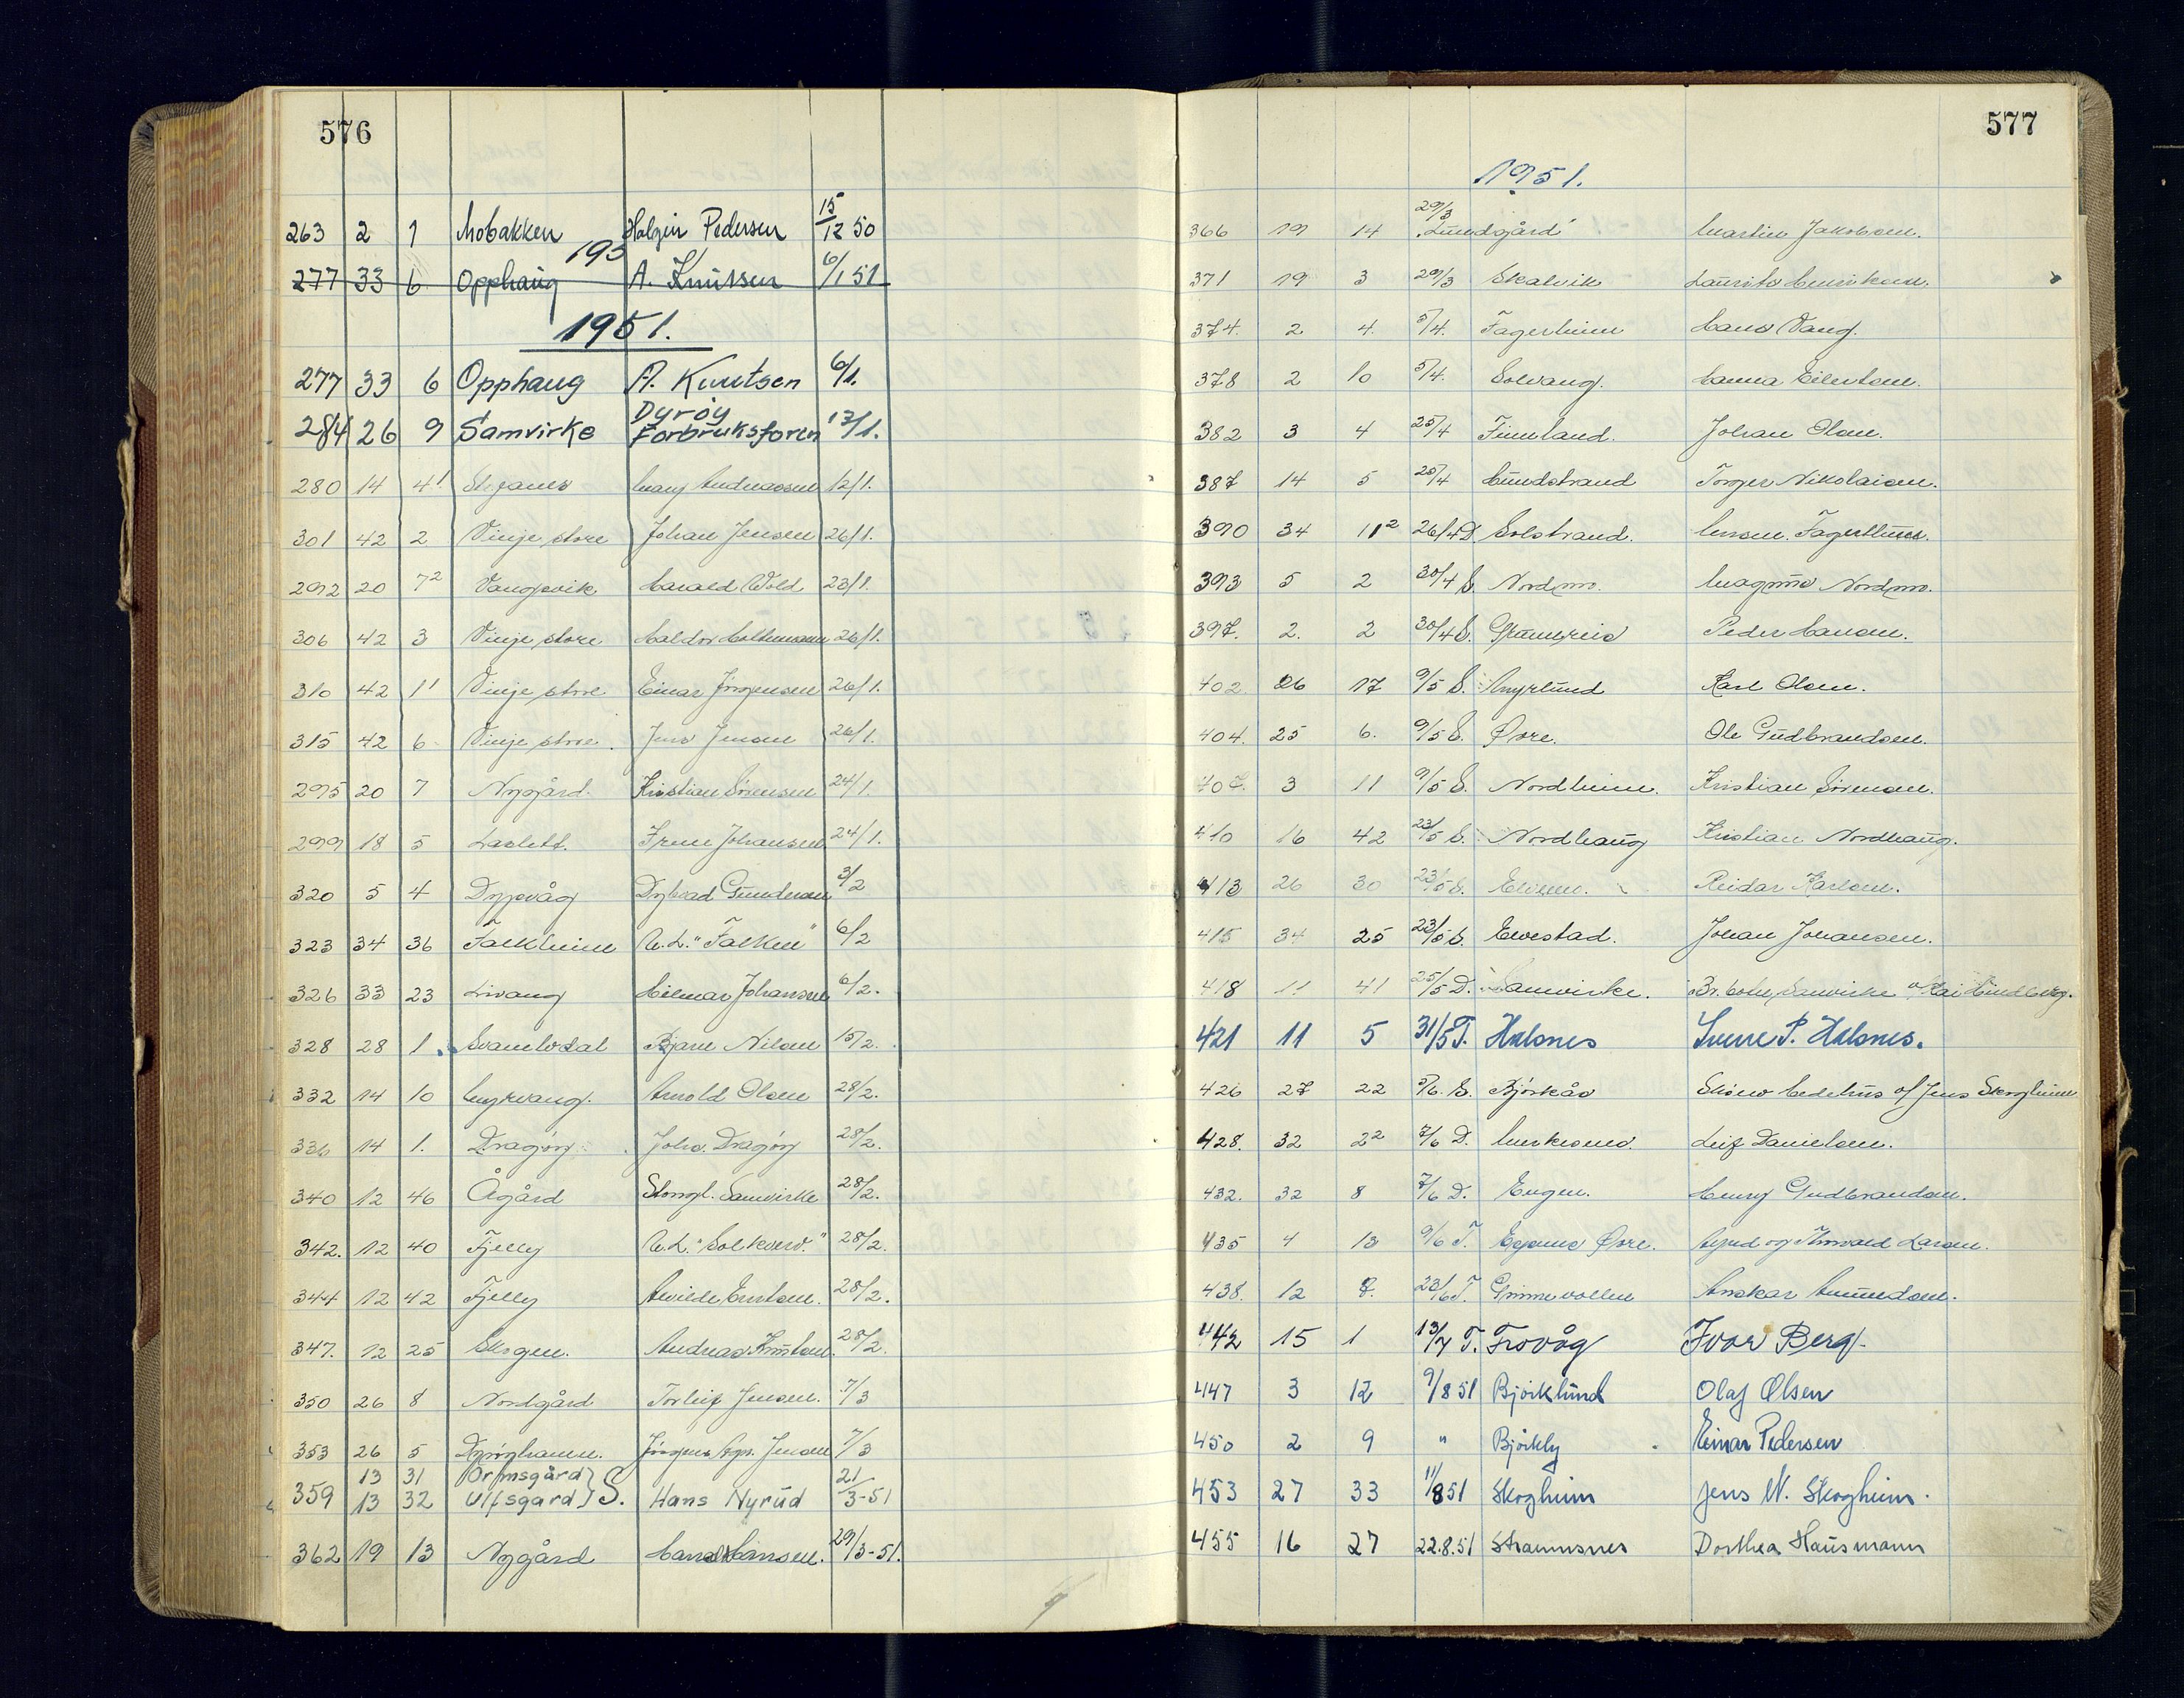 576
263 2 1 Mobakken Holger Pedersen 15/12 50
195
277 33 6 Opphaug A. Knutsen 6/1 51
1951.
277 33 6 Opphaug A. Knutsen 6/1.
284 26 9 Samvirke Dyrøy Forbruksforen 12/1.
280 14 4¹ Andreassen 12/1.
301 42 2 Vinje store Johan Jensen 26/1.
292 20 7² Vangsvik Harald Vold 23/1.
306 42 3 Vinje store Haldor 26/1.
310 42 1¹ Vinje store Einar Jörgensen 26/1.
315 42 6 Vinje store. Jens Jensen 26/1.
295 20 7 Nygård. Kristian Sörensen 24/1.
299 18 5 Laslett. Irene Johansen 24/1.
320 5 4 3/2
323 34 36 Falkheim A.L. "Falken" 6/2
326 33 23 Livang Hilmar Johansen 6/2.
328 28 1. Svanelvdal Bjarne Nilsen 15/2.
332 14 10 Myrvang. Arnold Olsen 28/2.
336 14 1. Dragöy Johs. Dragöy 28/2.
340 12 46 Ågård Stongl. Samvirke 28/2.
342. 12 40 Fjelly A.L. "Solkverv." 28/2.
344 12 42 Fjelly 28/2.
347. 12 25 Skogen. Andreas Knutsen. 28/2.
350 26 8 Nordgård Torleif Jensen. 7/3
353 26 5 Dyröyhamn. Jensen 7/3
359 13 31 Ormsgård } S. Hans Nyrud 21/3-51
13 32 Ulfsgard }
362 19 13 Nygård Hans Hansen. 29/3-51.
577
1951.
366 19 14 29/3 Lundgård Martin Jakobsen.
371 19 3 29/3 Skalvik Laurits Henriksen.
374. 2 4. 5/4. Fagerheim Hans Vang.
378 2 10 5/4. Solvang. Hanna Eilertsen.
382 3 4 25/4 Finnland. Johan Olsen.
387 14 5 25/4 Sundstrand Torger Nikolaisen.
390 34 11² 26/4 D. Solstrand. Fagerthun.
393 5 2 30/4 S. Nordmo. Magnus Nordmo.
397. 2. 2 30/4 S. Peder Hansen.
402. 26 17 9/5 S. Myrlund Karl Olsen.
404. 25 6. 9/5 S. Øvre. Ole Gudbrandsen.
407. 3 11 9/5 S. Nordheim. Kristian Sörensen.
410 16 42 23/5 S. Nordhaug Kristian Nordhaug.
413 26 30 23/5 S. Reidar Karlsen.
415 34 25 23/5 S. Elvestad. Johan Johansen.
418 11 41 25/5 D. Samvirke.
421 11 5 31/5 T. Halsnes Sverre P. Halsnes.
426 27 22 5/6. S. Björkås Bedehus v/ Jens Skogheim
428. 32 2² 7/6 D. Leif Danielsen.
432. 32 8 7/6 D. Engen. Henry Gudbrandsen.
435 4 13 9/6 T. Øvre. og Thorvald Larsen.
438. 12 8. 23/6 T. Grunnvollen Anskar Amundsen.
442 15 1 13/7 T. Trovåg Ivar Berg.
447 3 12 9/8 51 Björklund Olaf Olsen
450 2 9 " Björkly Einar Pedersen
453 27 33 11/8 51 Skogheim Jens N. Skogheim.
455 16 27 22.8.51 Straumsnes Dorthea Hausmann